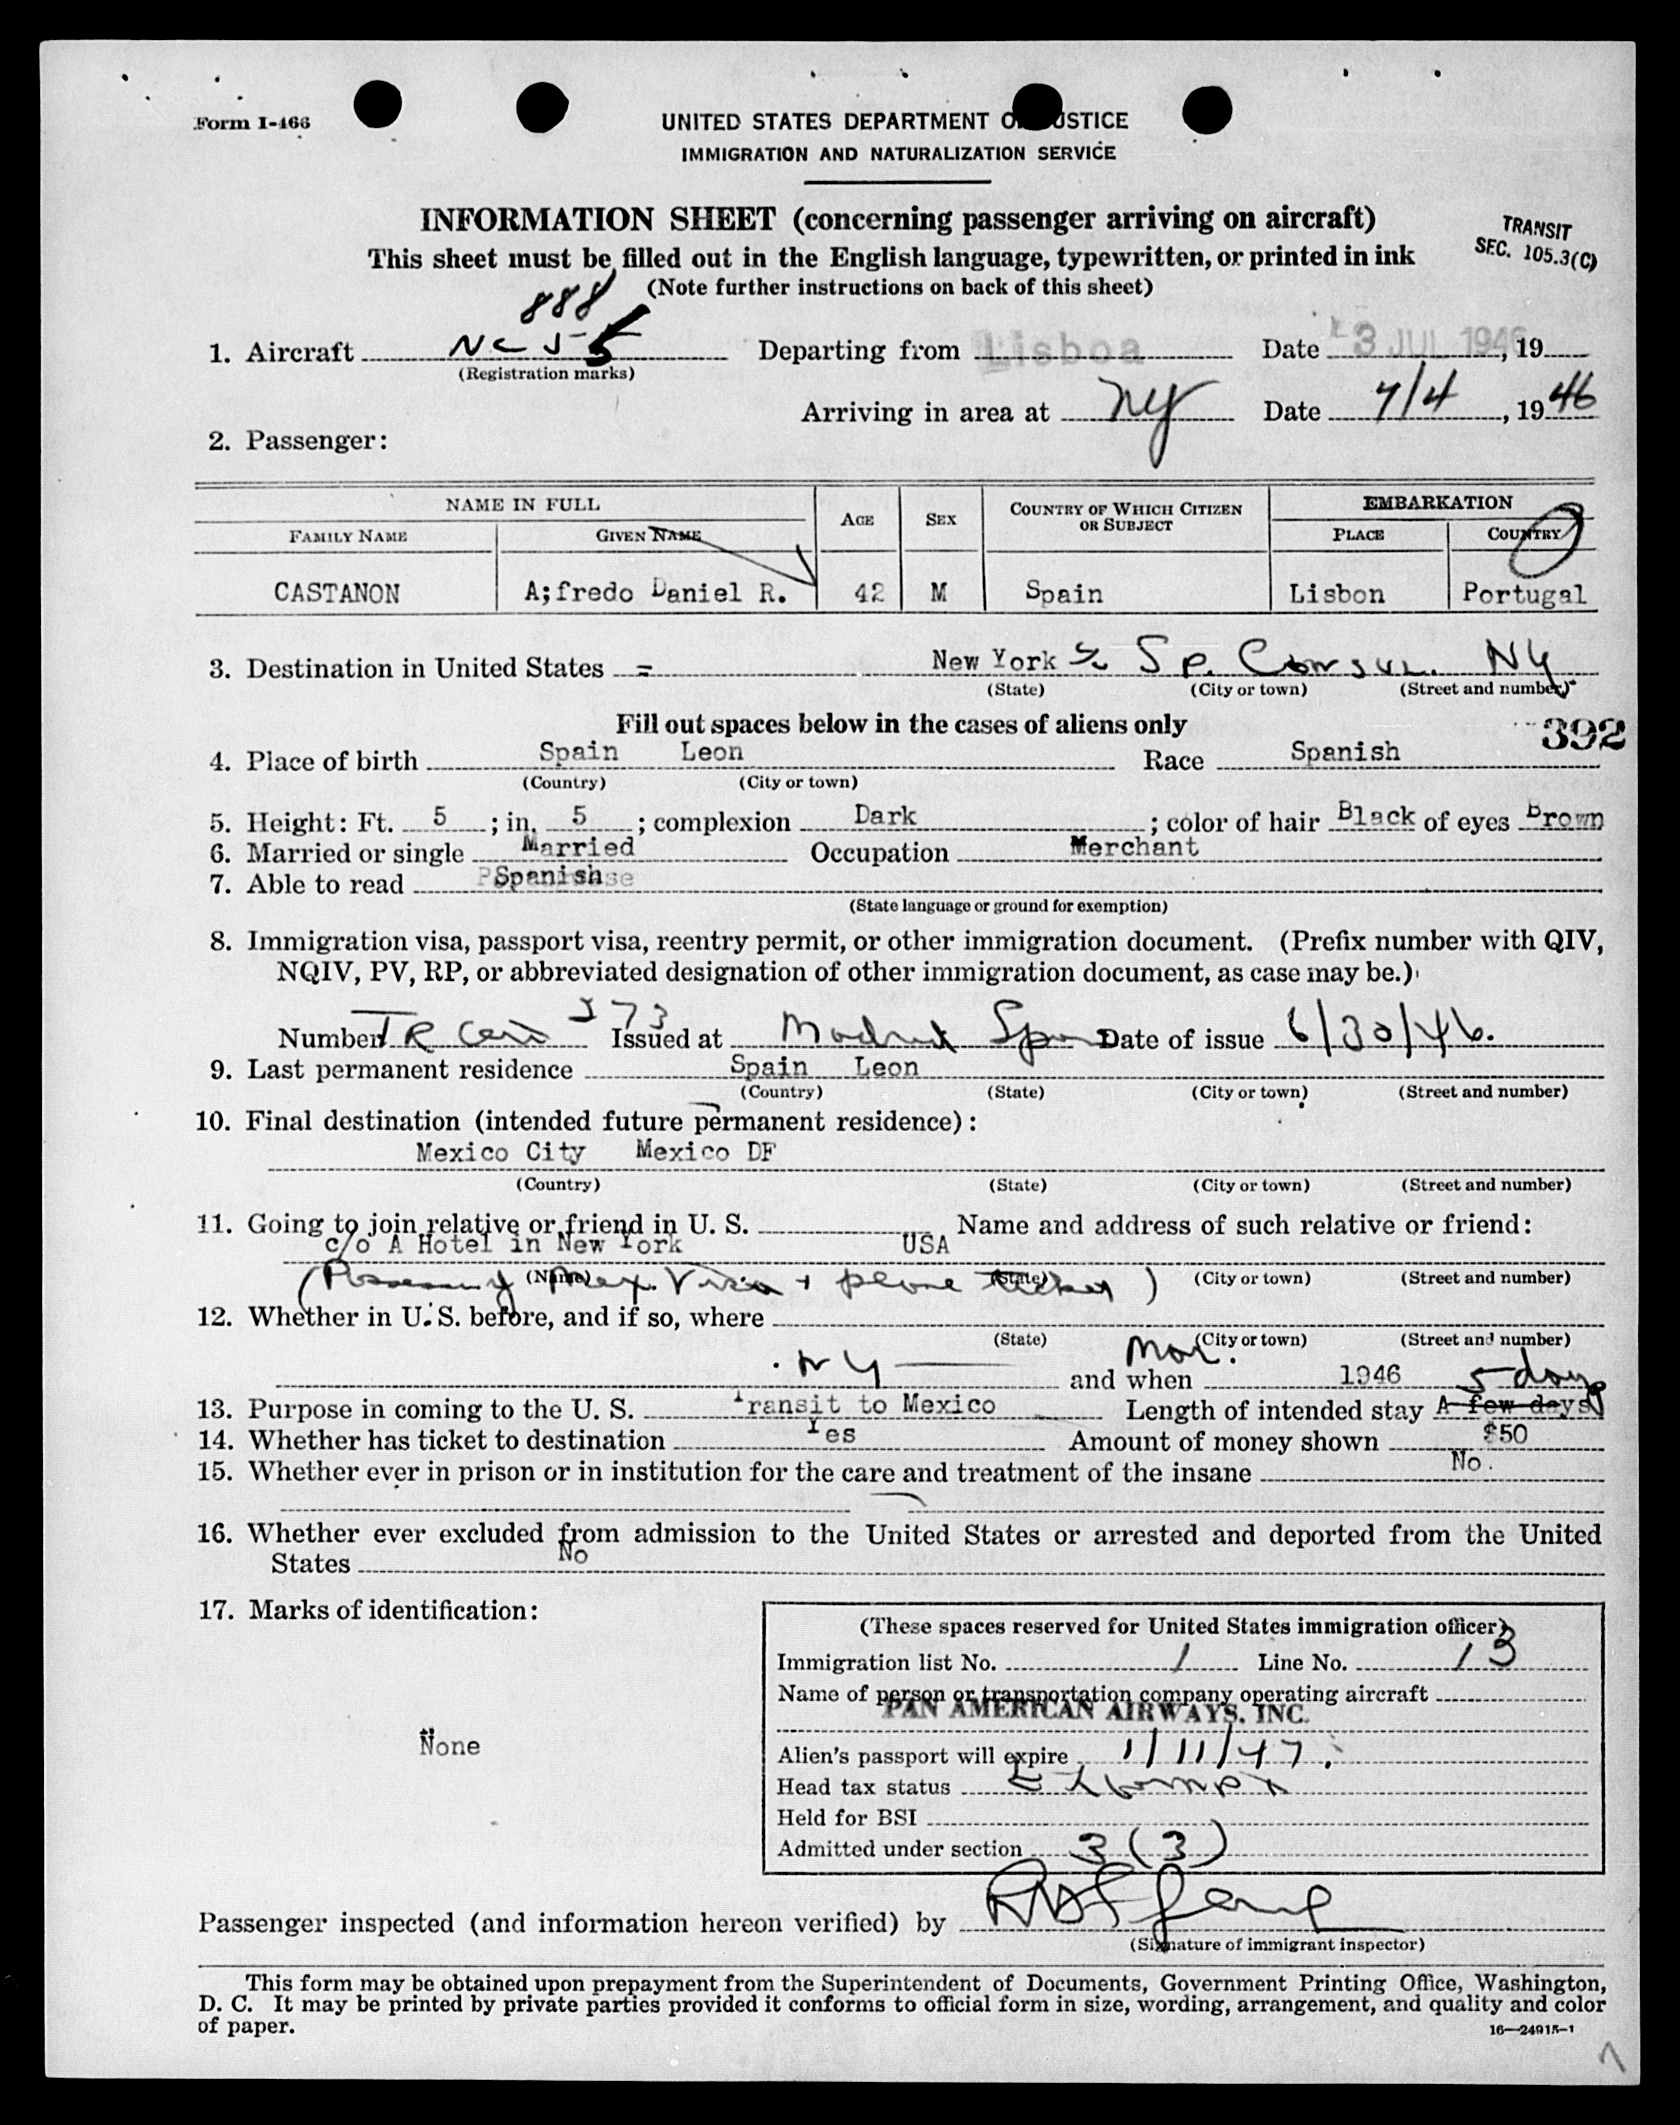 Form I-466
UNITED STATES DEPARTMENT OF JUSTICE
IMMIGRATION AND NATURALIZATION SERVICE
INFORMATION SHEET (concerning passenger arriving on aircraft)
TRANSIT
SEC. 105.3(C)
This sheet must be filled out in the English language, typewritten, or printed in ink
(Note further instructions on back of this sheet)
888
1. Aircraft NC Departing from Lisboa Date 3 JUL 1946, 19
(Registration marks)
Arriving in area at NY Date 7/4, 1946
2. Passenger:
NAME IN FULL AGE SEX COUNTRY OF WHICH CITIZEN OR SUBJECT EMBARKATION
FAMILY NAME GIVEN NAME PLACE COUNTRY
CASTANON A;fredo Daniel R. 42 M Spain Lisbon Portugal
3. Destination in United States = New York c/o Sp. Consul. NY
(State) (City or town) (Street and number)
Fill out spaces below in the cases of aliens only
392
4. Place of birth Spain Leon Race Spanish
(Country) (City or town)
5. Height: Ft. 5; in. 5; complexion Dark; color of hair Black of eyes Brown
6. Married or single Married Occupation Merchant
7. Able to read Spanish
(State language or ground for exemption)
8. Immigration visa, passport visa, reentry permit, or other immigration document. (Prefix number with QIV,
NQIV, PV, RP, or abbreviated designation of other immigration document, as case may be.)
Number TR Cert 373 Issued at Madrid Spain Date of issue 6/30/46.
9. Last permanent residence Spain Leon
(Country) (State) (City or town) (Street and number)
10. Final destination (intended future permanent residence):
Mexico City Mexico DF
(Country) (State) (City or town) (Street and number)
11. Going to join relative or friend in U. S. Name and address of such relative or friend:
c/o A Hotel in New York USA
(Name) (State) (City or town) (Street and number)
(Possessing Mex. Visa + plane ticket)
12. Whether in U. S. before, and if so, where
(State) (City or town) (Street and number)
NY and when Mar. 1946
5 days
13. Purpose in coming to the U. S. Transit to Mexico Length of intended stay A few days
14. Whether has ticket to destination Yes Amount of money shown $50
15. Whether ever in prison or in institution for the care and treatment of the insane No.
16. Whether ever excluded from admission to the United States or arrested and deported from the United
States No
17. Marks of identification:
None
(These spaces reserved for United States immigration officer)
Immigration list No. 1 Line No. 13
Name of person or transportation company operating aircraft
PAN AMERICAN AIRWAYS, INC.
Alien's passport will expire 1/11/47.
Head tax status Exempt
Held for BSI
Admitted under section 3(3)
Passenger inspected (and information hereon verified) by
(Signature of immigrant inspector)
This form may be obtained upon prepayment from the Superintendent of Documents, Government Printing Office, Washington,
D. C. It may be printed by private parties provided it conforms to official form in size, wording, arrangement, and quality and color
of paper.
16—24915-1